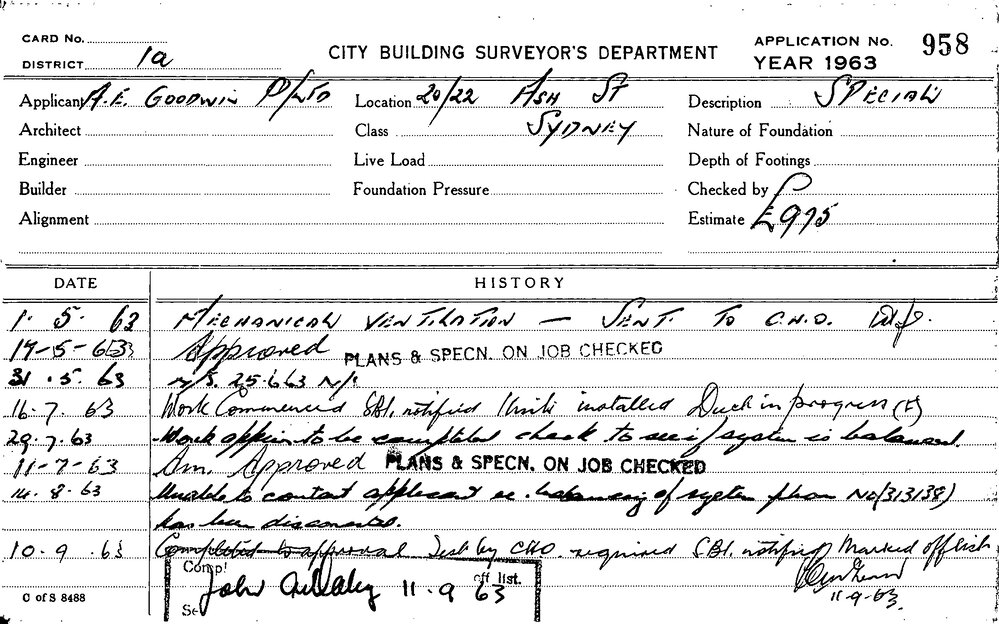 CARD No.
DISTRICT 1a
CITY BUILDING SURVEYOR'S DEPARTMENT
APPLICATION No. 958
YEAR 1963
Applicant A.E. GOODWIN P/LTD Location 20/22 ASH ST Description SPECIAL
Architect Class SYDNEY Nature of Foundation
Engineer Live Load Depth of Footings
Builder Foundation Pressure Checked by
Alignment Estimate £975
DATE HISTORY
1. 5. 63 MECHANICAL VENTILATION — SENT. TO C.H.O.
-5-63 Approved PLANS & SPECN. ON JOB CHECKED
31.5.63 25.6.63
16.7.63 Work Commenced SBI. notified Units installed Duck in progress
29.7.63 Work appears to be completed check to see if system is balanced.
11-7-63 Am. Approved PLANS & SPECN. ON JOB CHECKED
14.8.63 Unable to contact applicant re. balancing of system phone No (313138)
has been disconnected.
10.9.63 Completed to approval Test by CHO required SBI. notified Marked off list
Compl off list.
John 11.9 63
Se
11.9.63.
C of S 8488